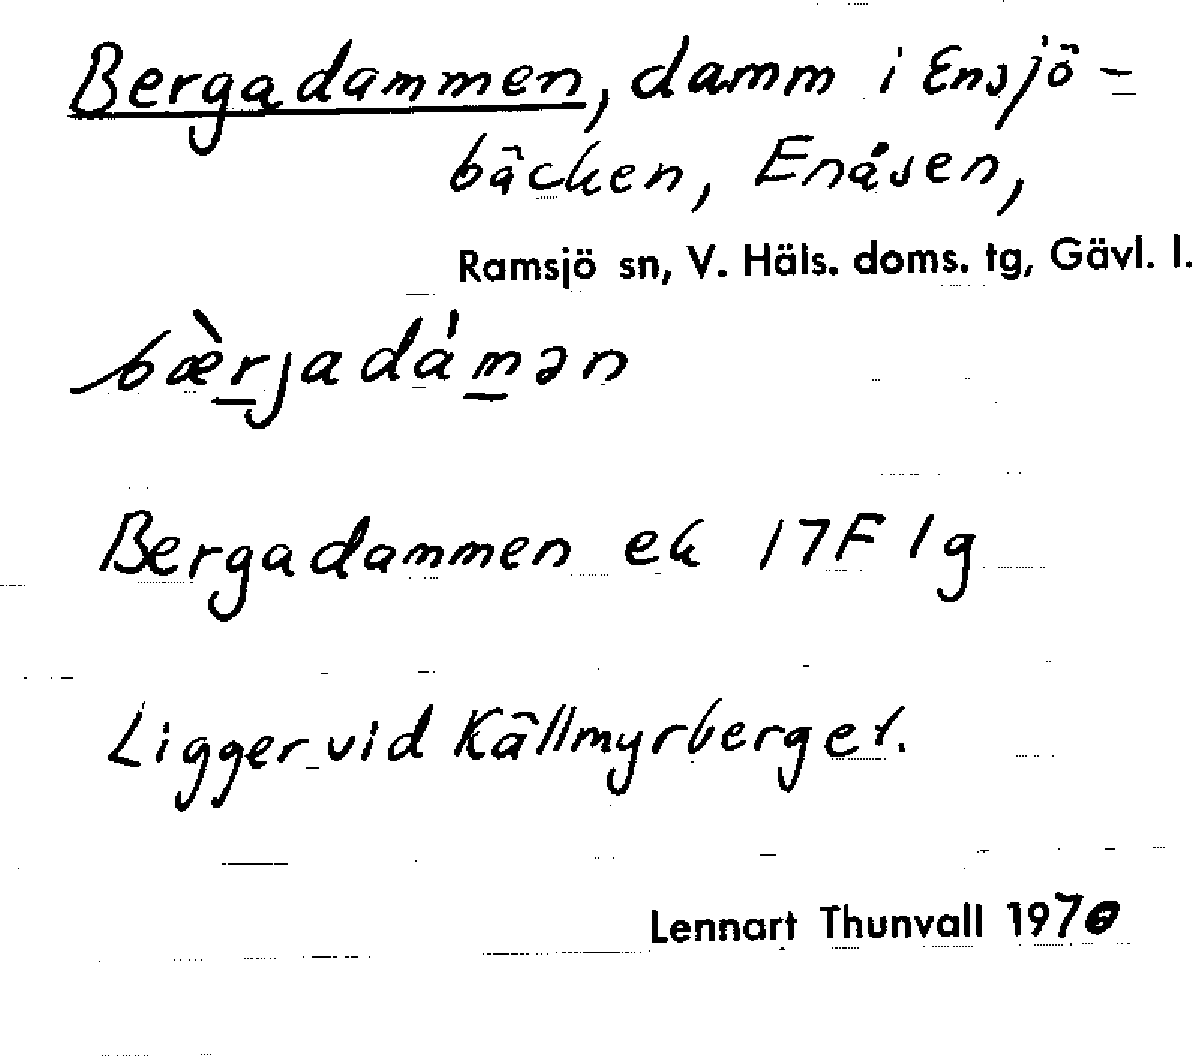 Bergadammen, damm i Ensjö-
bäcken, Enåsen,
Ramsjö sn, V. Häls. doms. tg, Gävl. l.
bæ̀rjadám̲ən
Bergadammen ek 17F 1g
Ligger vid Källmyrberget.
Lennart Thunvall 1970